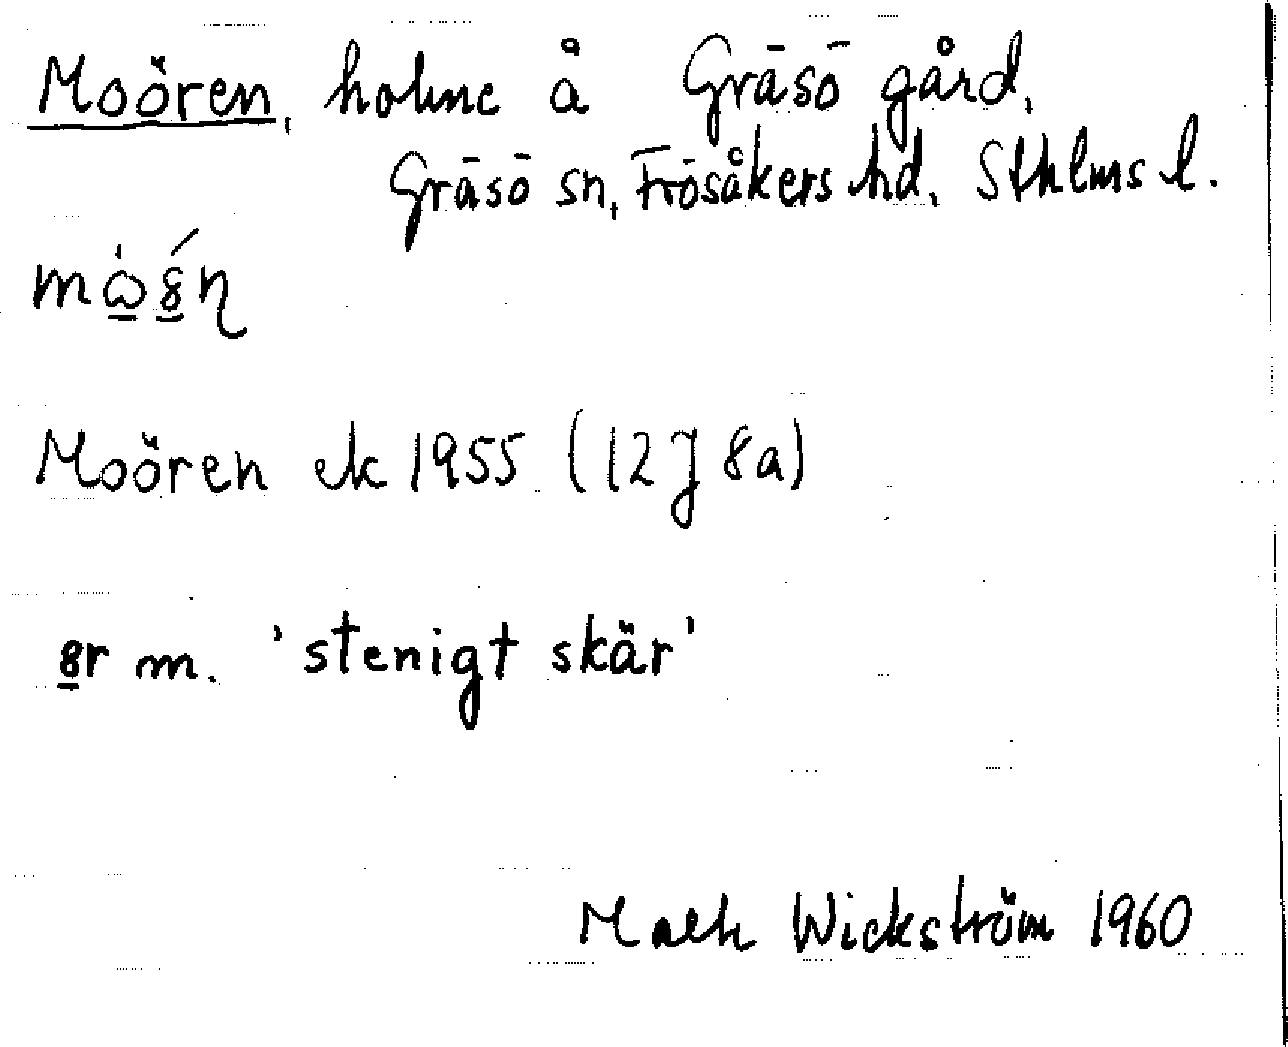 Moören, holme å Gräsö gård,
Gräsö sn, Frösåkers hd, Sthlms l.
Moören ek 1955 (12J 8a)
m. 'stenigt skär'
Wickström 1960